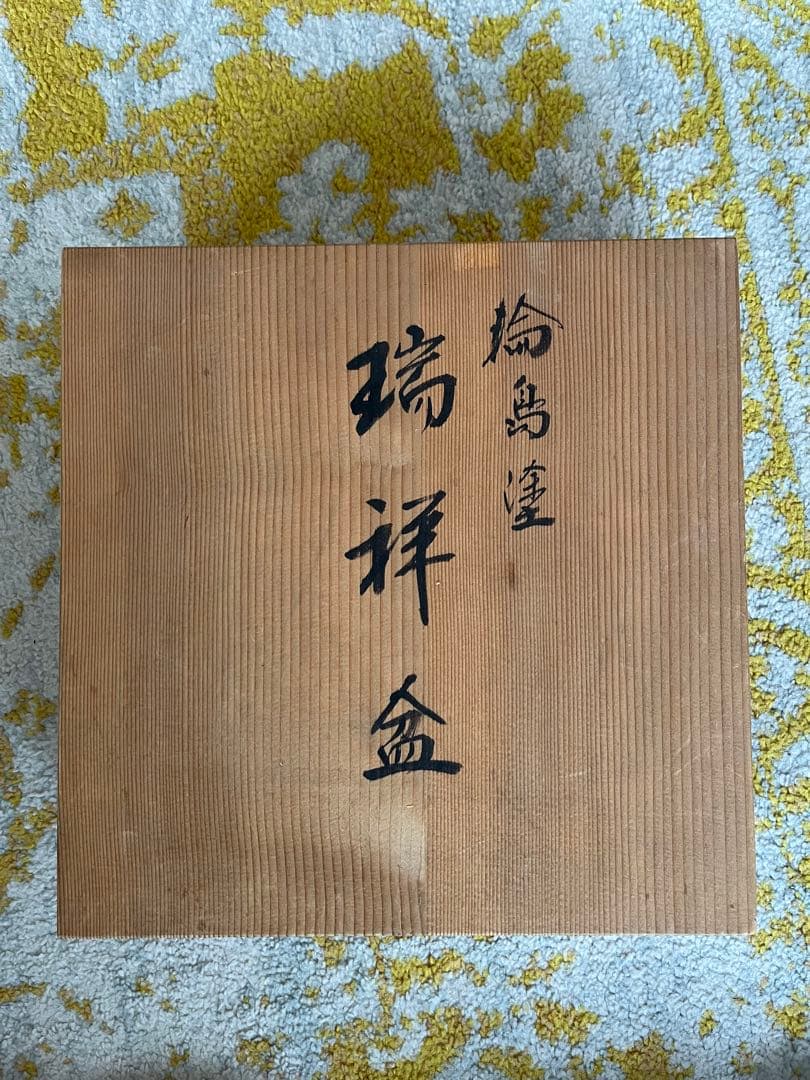 輪島塗
瑞祥盆